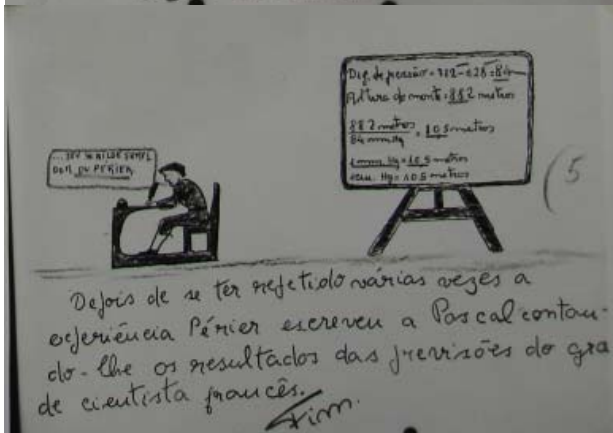 DU PERIER
Dif. de pressão = 712 - 628 = 84
Altura do monte = 882 metros
882 metros
84 mm Hg = 10.5 metros
1 mm Hg = 10.5 metros
Hg = 10.5 metros
(5
Depois de se ter repetido várias vezes a
experiência Périer escreveu a Pascal contan-
do-lhe os resultados das previsões do gra
de cientista francês.
Fim.